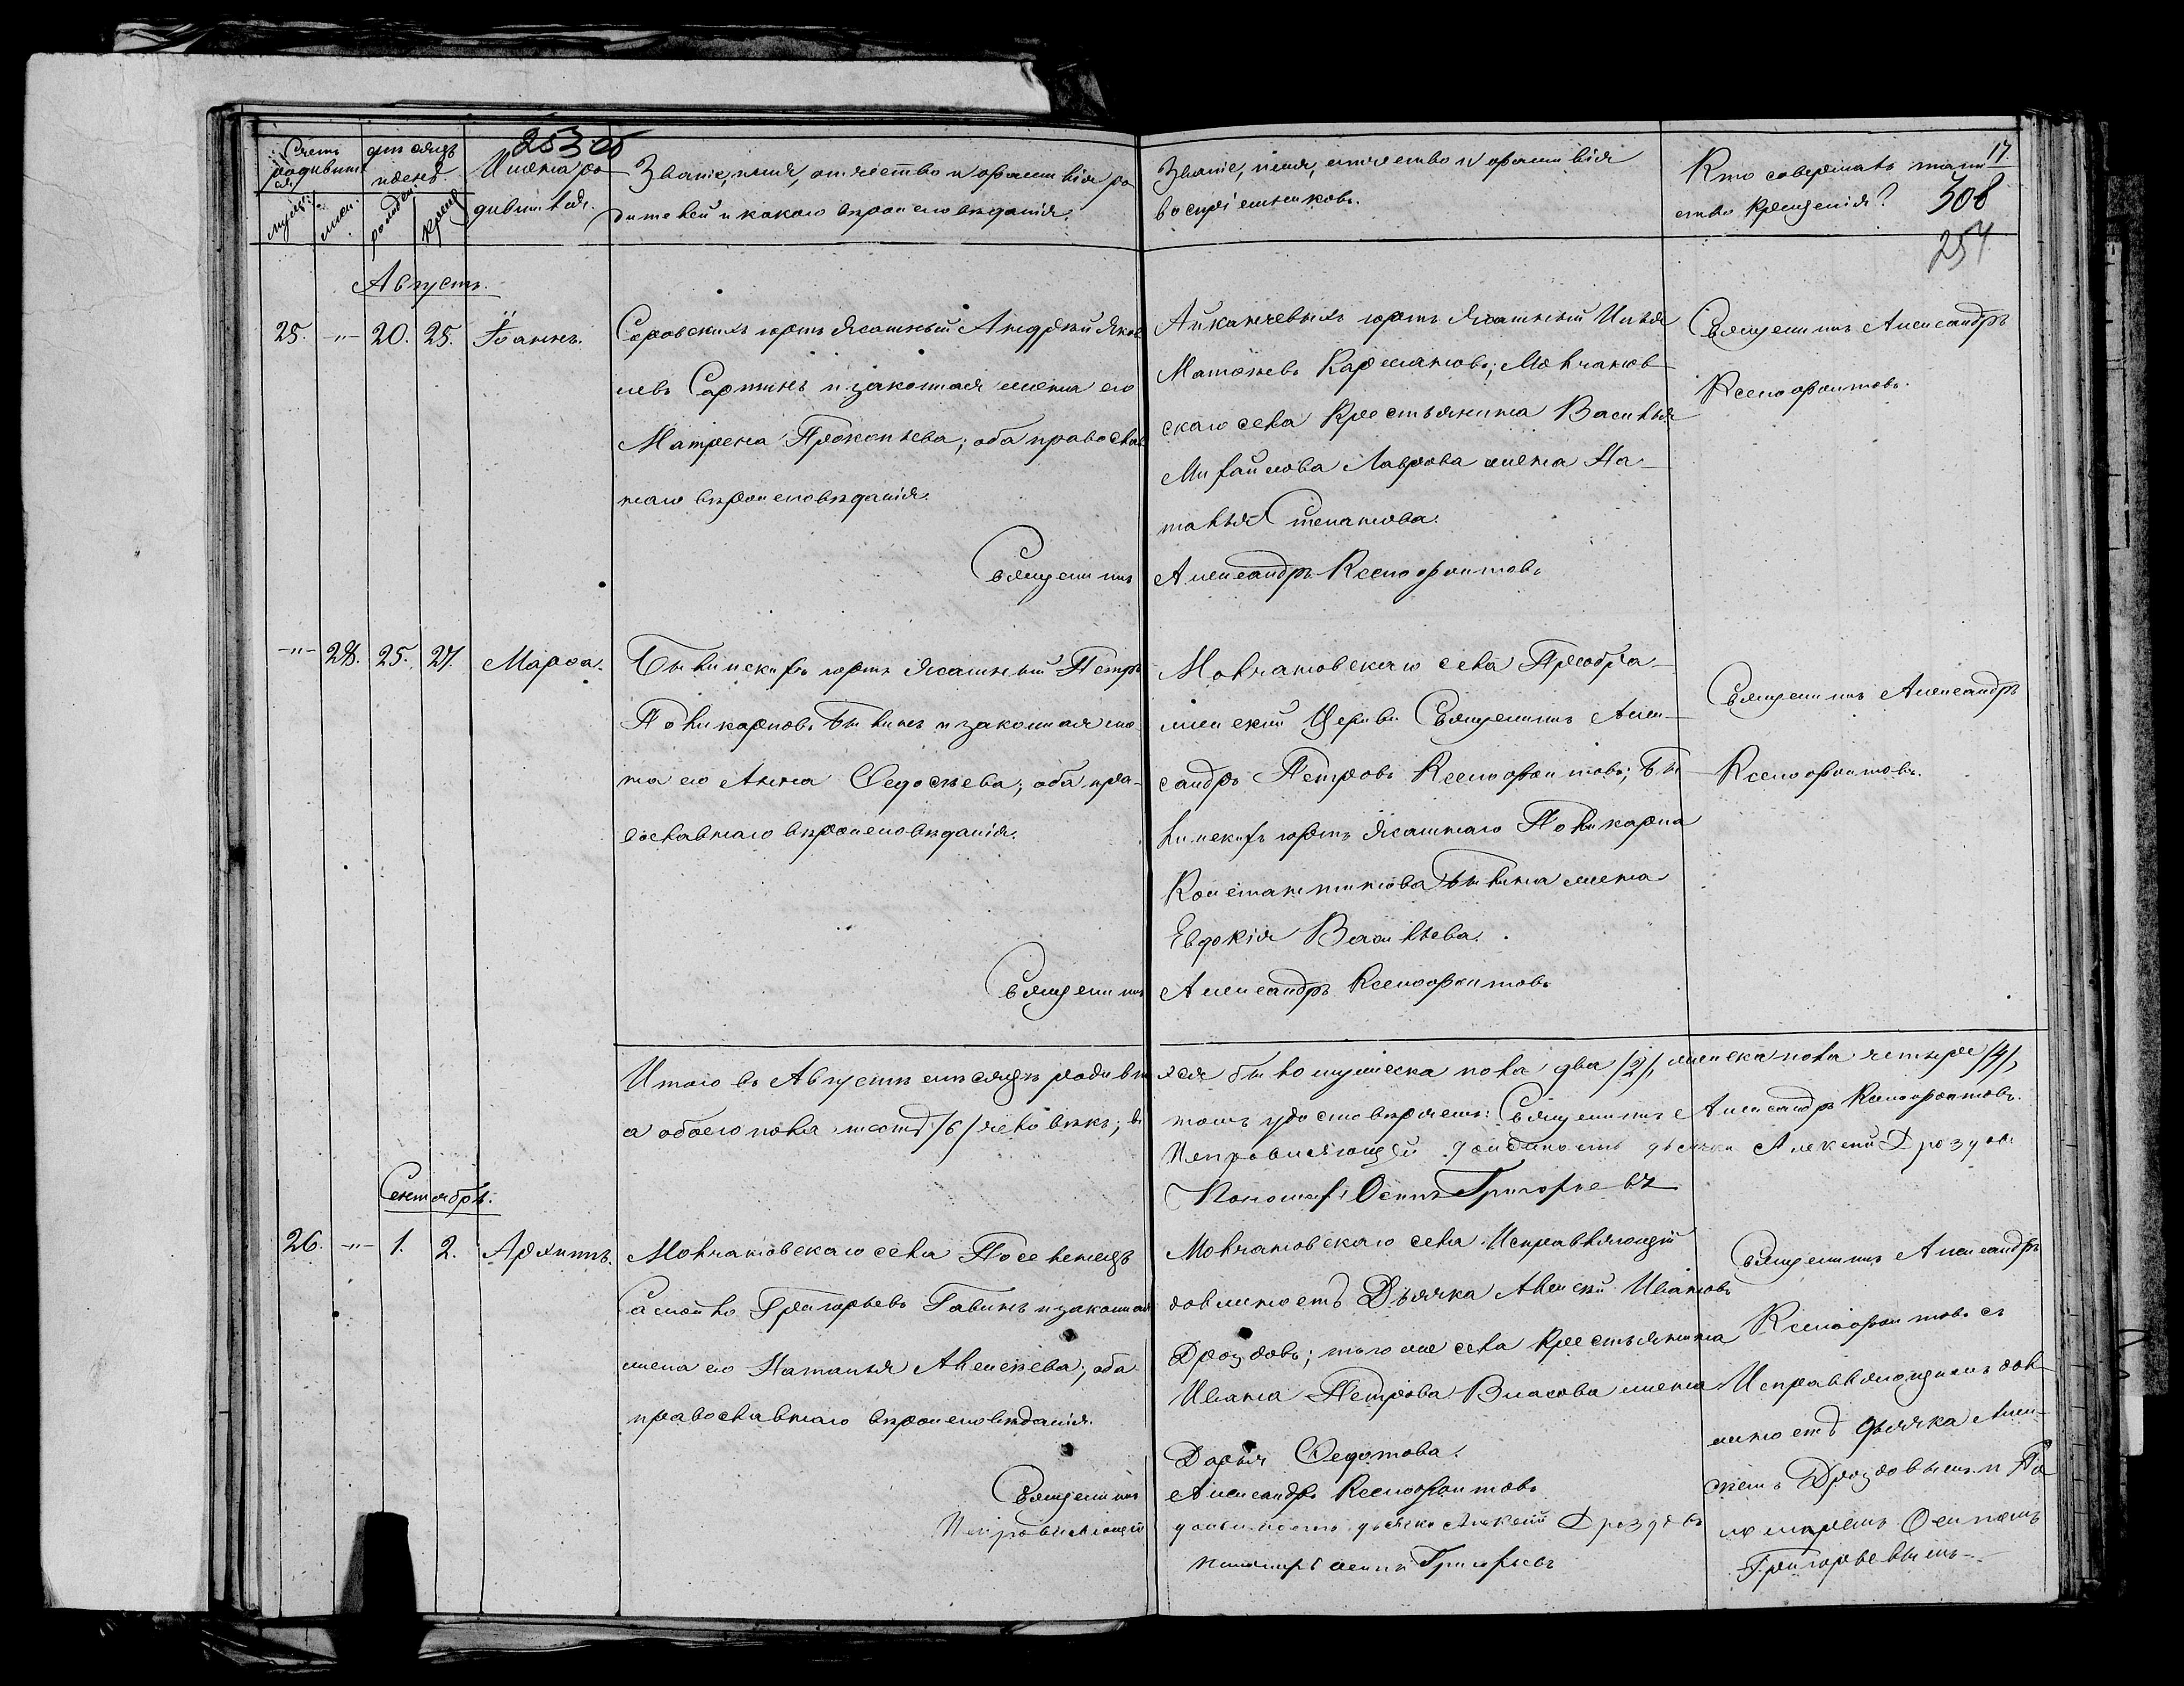 253 об
17.
308
254
Счетъ родившихся
мужес:
жен:
мѣсяцъ и день
рожден:
крещ:
Имена родившихся.
Званіе, имя, отчество и фамилія ро
дителей и какого вѣроисповѣданія.
Званіе, имя, отчество и фамилія
воспріемниковъ.
Кто совершалъ таин
ство крещенія?
Августъ.
25. -"- 20. 25. Іоаннъ.
Саровскихъ юртъ Ясашный Андрей Яков
левъ Сартинъ и законная жена его
Матрена Прокопьева; оба православ
наго вѣроисповѣданія.
Священникъ
Айканчевыхъ юртъ Ясашный Илья
Матѳеевъ Кармановъ; Молчанов
скаго села Крестьянина Василья
Михайлова Лаврова жена На-
талья Степанова.
Александръ Ксенофонтовъ
Священникъ Александръ
Ксенофонтовъ.
-"- 28. 25. 27. Марѳа.
Былинскихъ юртъ Ясашный Петръ
Поликарповъ Былинъ и законная же
на его Анна Ѳедосѣева; оба пра-
вославнаго вѣроисповѣданія.
Священникъ
Молчановскаго села Преобра-
женской Церкви Священникъ Алек-
сандръ Петровъ Ксенофонтовъ; Бы
линскихъ юртъ Ясашнаго Поликарпа
Константинова Былина жена
Евдокія Васильева.
Александръ Ксенофонтовъ
Священникъ Александръ
Ксенофонтовъ.
Итого въ Августѣ мѣсяцѣ родивших
ся было мужеска пола два /2/, женска пола четыре /4/,
а обоего пола шесть /6/ человѣкъ; въ
томъ удостовѣряемъ: Священникъ Александръ Ксенофонтовъ.
Исправляющей должность дьячка Алексей Дроздовъ
Пономарь Осипъ Григорьевъ
Сентябрь.
26. -"- 1. 2. Архипъ.
Молчановскаго села Поселенецъ
Самойло Григорьевъ Гавинъ и законная
жена его Наталья Алексѣева; оба
православнаго вѣроисповѣданія.
Священникъ
Исправляющей
Молчановскаго села Исправляющій
должность Дьячка Алексѣй Ивановъ
Дроздовъ; того же села Крестьянина
Ивана Петрова Власова жена
Дарья Ѳедотова.
Александръ Ксенофонтовъ
должность дьячка Алексей Дроздовъ
пономарь осипъ Григорьевъ
Священникъ Александръ
Ксенофонтовъ съ
Исправляющимъ дол-
жность дьячка Алек-
сѣемъ Дроздовымъ и По
номаремъ Осипомъ
Григорьевымъ.